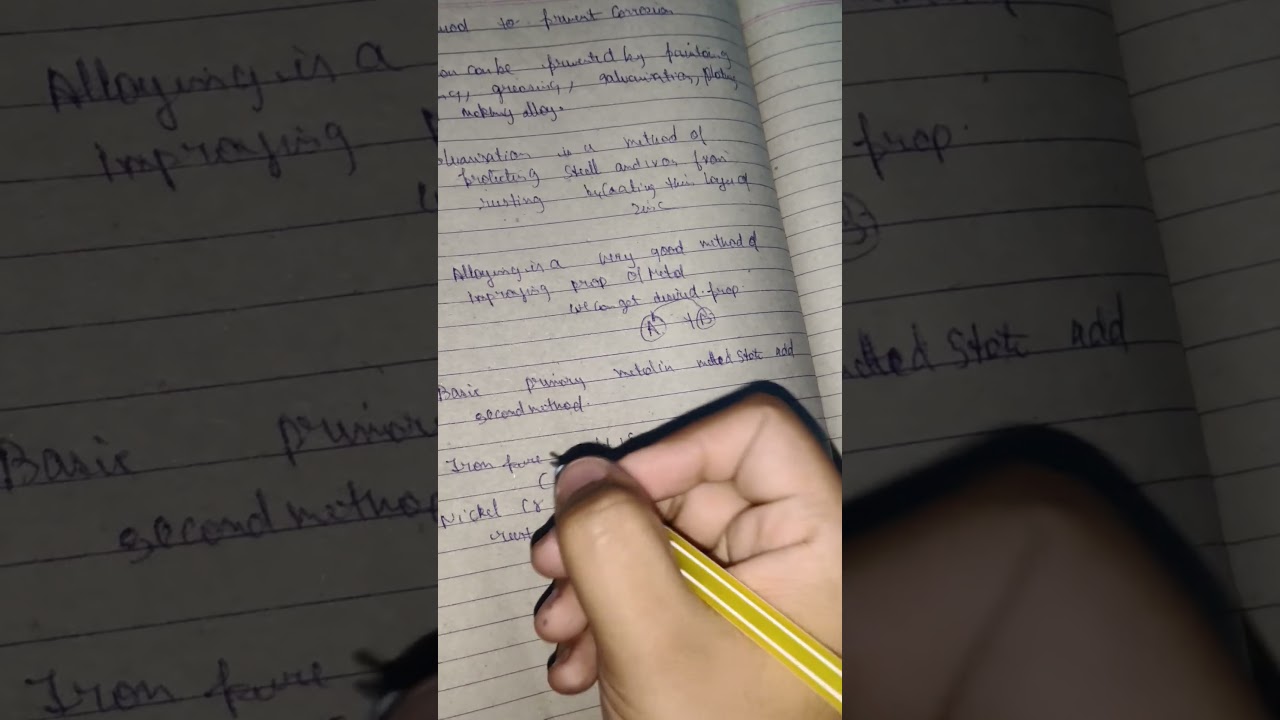 to prevent Corrosion
can be prevented by painting
greasing, galvanisation, plating
making alloy.
is a method of
protecting steell and iron from
rusting by coating thin layer of
zinc
Alloying is a very good method of
improving prop of metal
we can get desired prop.
A + B
Basic primary metal in melted state add
second method.
Iron pure
Nickel Cr
rust